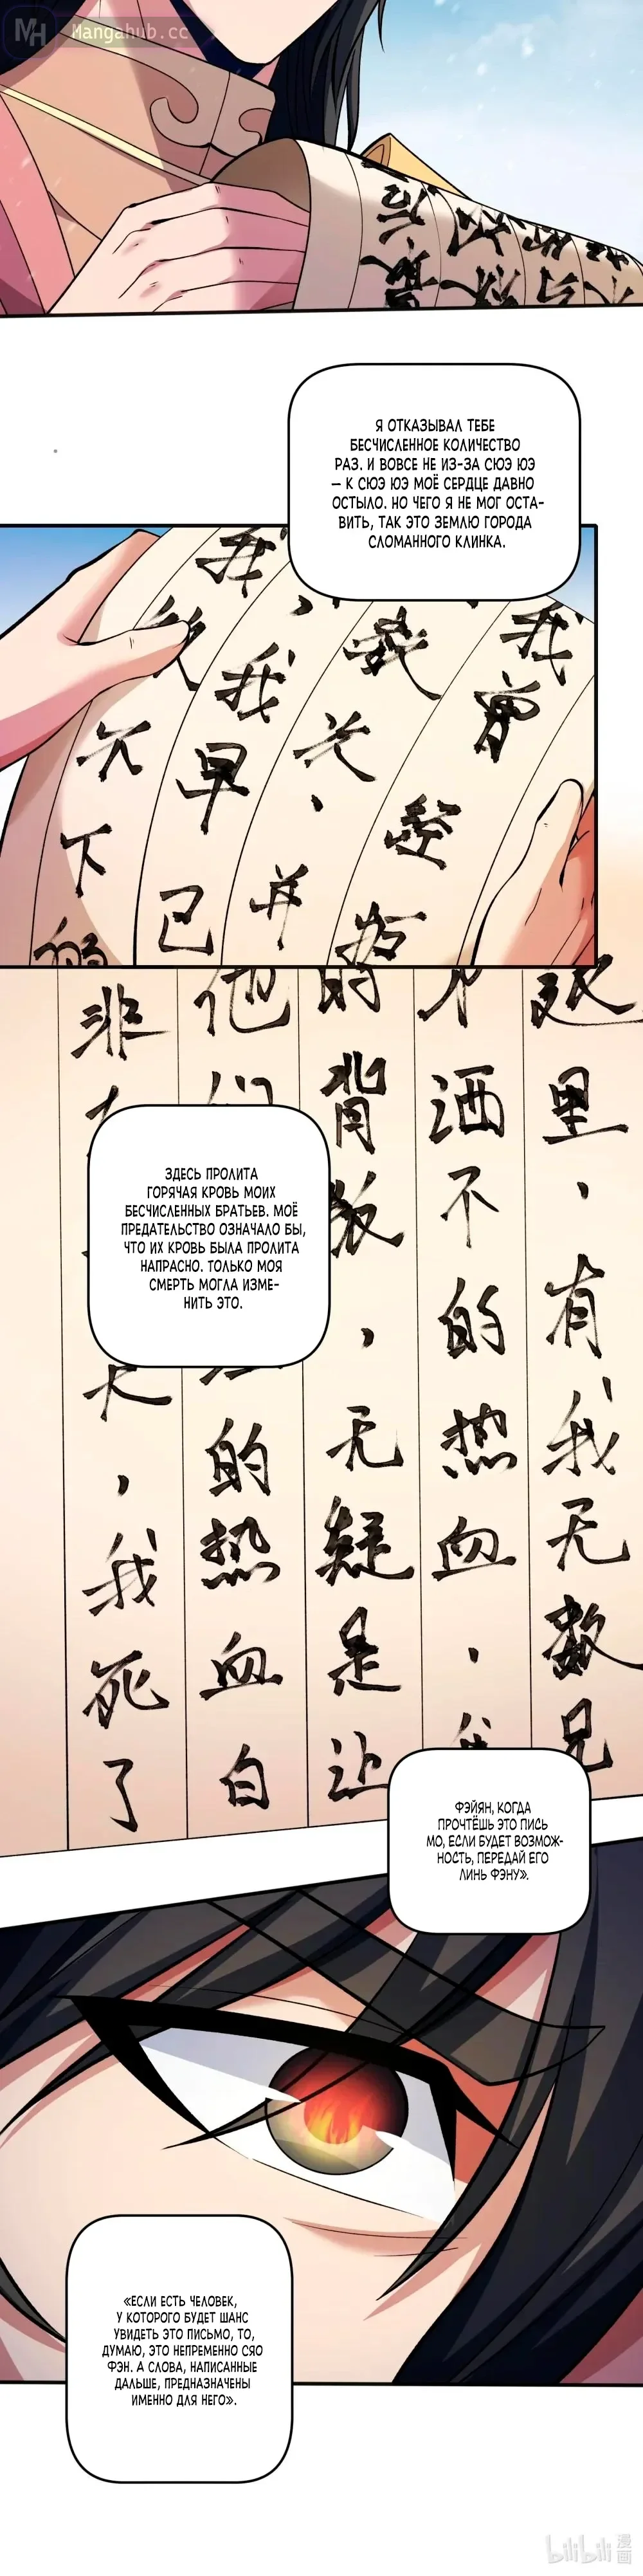 MH Mangahub.cc
Я ОТКАЗЫВАЛ ТЕБЕ
БЕСЧИСЛЕННОЕ КОЛИЧЕСТВО
РАЗ. И ВОВСЕ НЕ ИЗ-ЗА СЮЭ ЮЭ
– К СЮЭ ЮЭ МОЁ СЕРДЦЕ ДАВНО
ОСТЫЛО. НО ЧЕГО Я НЕ МОГ ОСТА-
ВИТЬ, ТАК ЭТО ЗЕМЛЮ ГОРОДА
СЛОМАННОГО КЛИНКА.
我曾
我早已
不下
里、有我无数兄
洒不的热血、
的背叛，无疑是让
他们
的热血白
非
，我死了
ЗДЕСЬ ПРОЛИТА
ГОРЯЧАЯ КРОВЬ МОИХ
БЕСЧИСЛЕННЫХ БРАТЬЕВ. МОЁ
ПРЕДАТЕЛЬСТВО ОЗНАЧАЛО БЫ,
ЧТО ИХ КРОВЬ БЫЛА ПРОЛИТА
НАПРАСНО. ТОЛЬКО МОЯ
СМЕРТЬ МОГЛА ИЗМЕ-
НИТЬ ЭТО.
ФЭЙЯН, КОГДА
ПРОЧТЁШЬ ЭТО ПИСЬ
МО, ЕСЛИ БУДЕТ ВОЗМОЖ-
НОСТЬ, ПЕРЕДАЙ ЕГО
ЛИНЬ ФЭНУ».
«ЕСЛИ ЕСТЬ ЧЕЛОВЕК,
У КОТОРОГО БУДЕТ ШАНС
УВИДЕТЬ ЭТО ПИСЬМО, ТО,
ДУМАЮ, ЭТО НЕПРЕМЕННО СЯО
ФЭН. А СЛОВА, НАПИСАННЫЕ
ДАЛЬШЕ, ПРЕДНАЗНАЧЕНЫ
ИМЕННО ДЛЯ НЕГО».
bilibili 漫画